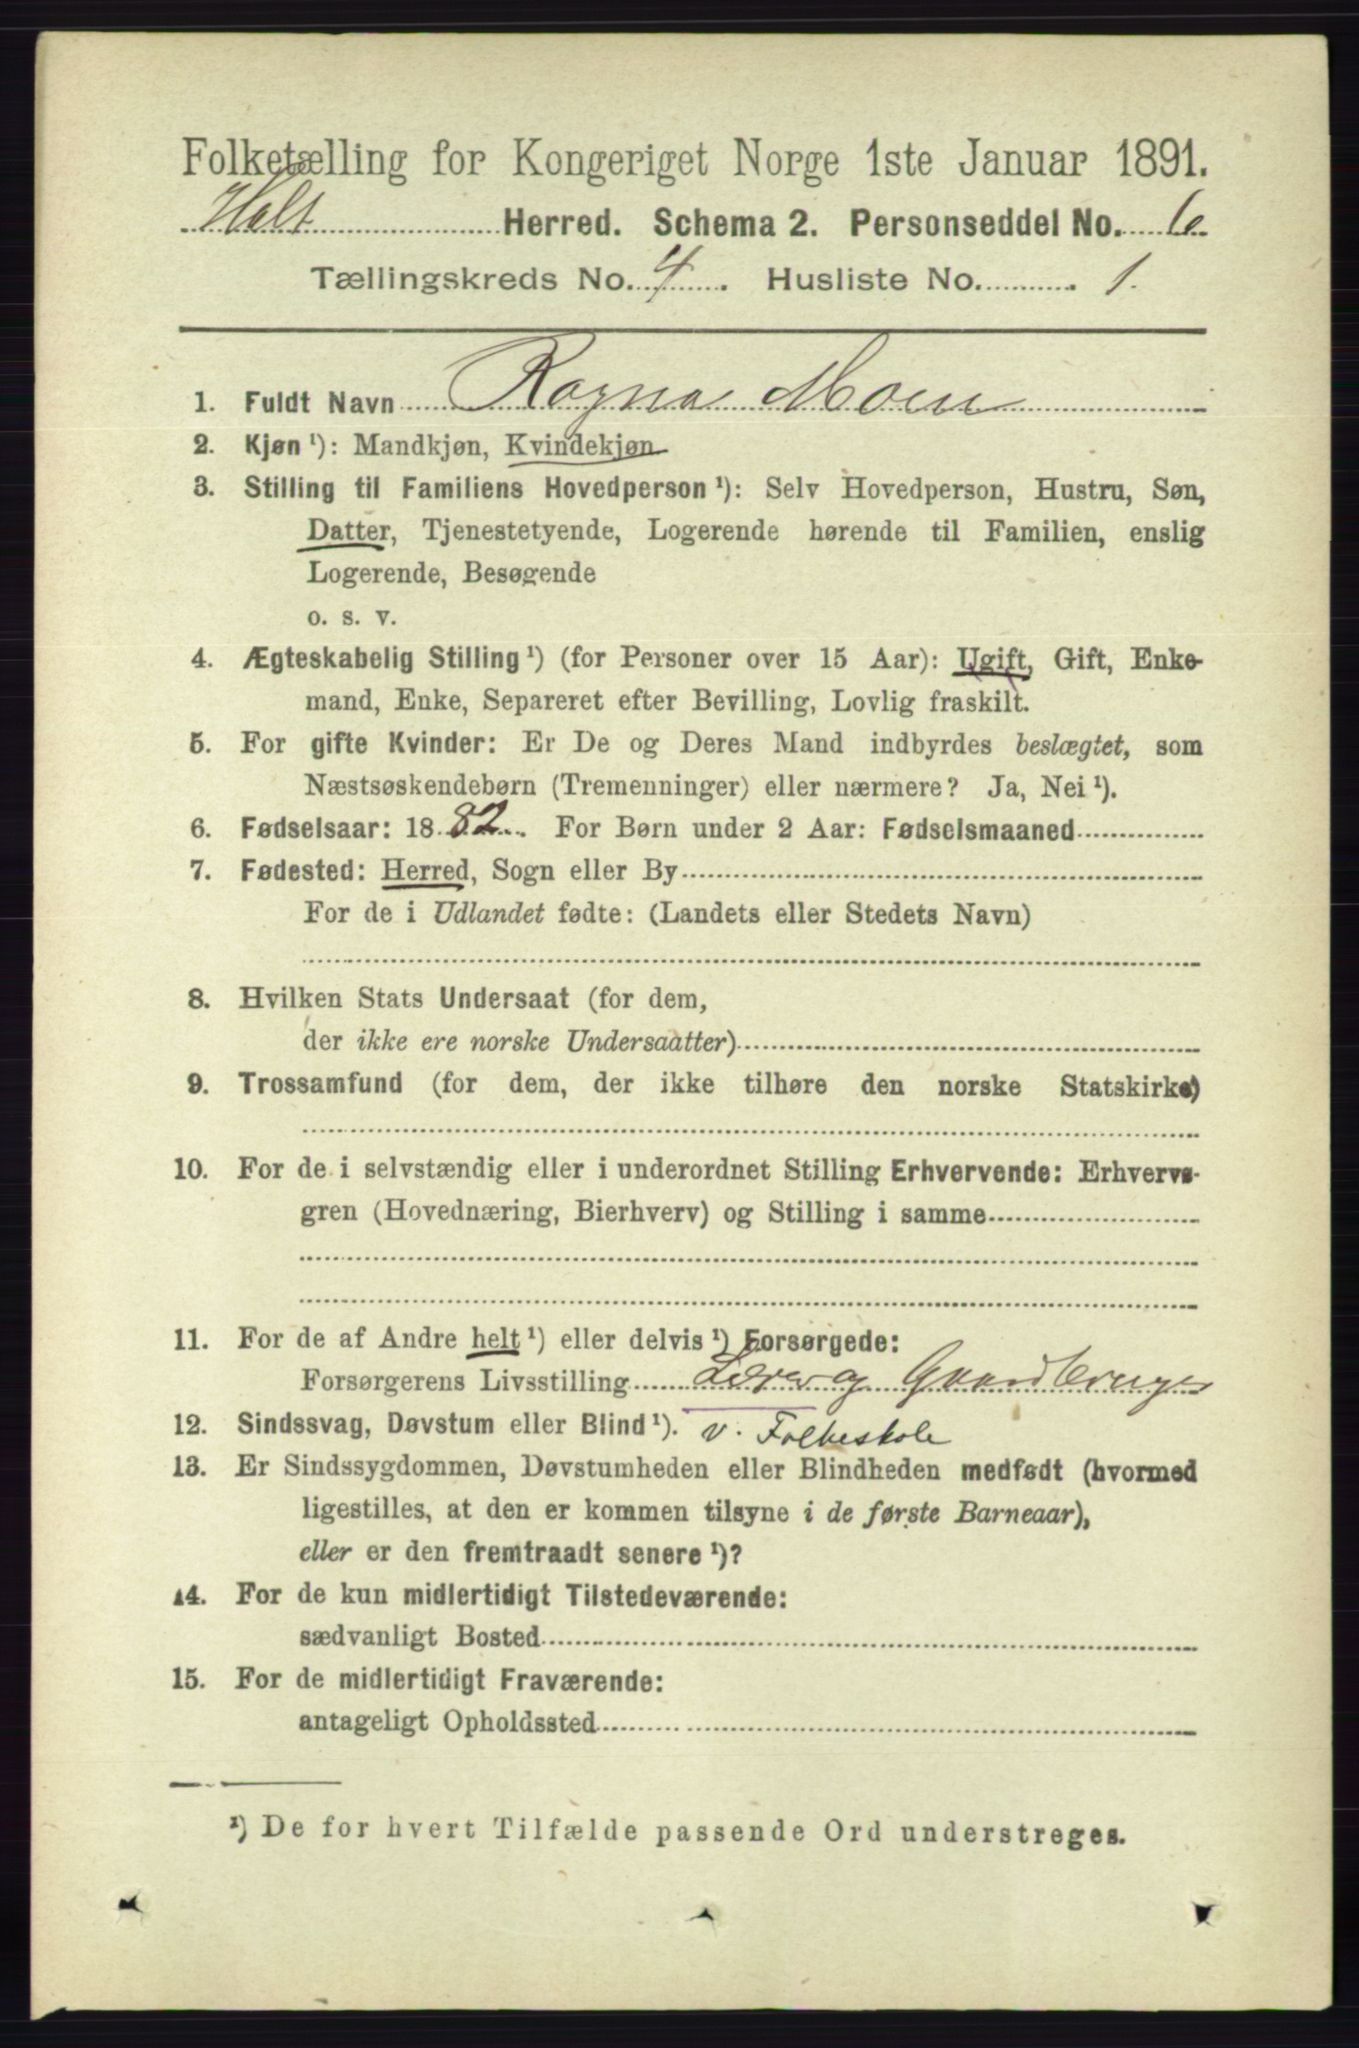 Folketælling for Kongeriget Norge 1ste Januar 1891.
Holt Herred. Schema 2. Personseddel No. 6.
Tællingskreds No. 4. Husliste No. 1.
1. Fuldt Navn Ragna Moen
2. Kjøn ¹): Mandkjøn, Kvindekjøn
3. Stilling til Familiens Hovedperson ¹): Selv Hovedperson, Hustru, Søn,
Datter, Tjenestetyende, Logerende hørende til Familien, enslig
Logerende, Besøgende
o. s. v.
4. Ægteskabelig Stilling ¹) (for Personer over 15 Aar): Ugift, Gift, Enke-
mand, Enke, Separeret efter Bevilling, Lovlig fraskilt.
5. For gifte Kvinder: Er De og Deres Mand indbyrdes beslægtet, som
Næstsøskendebørn (Tremenninger) eller nærmere? Ja, Nei ¹).
6. Fødselsaar: 1882. For Børn under 2 Aar: Fødselsmaaned
7. Fødested: Herred, Sogn eller By
For de i Udlandet fødte: (Landets eller Stedets Navn)
8. Hvilken Stats Undersaat (for dem,
der ikke ere norske Undersaatter)
9. Trossamfund (for dem, der ikke tilhøre den norske Statskirke)
10. For de i selvstændig eller i underordnet Stilling Erhvervende: Erhvervs-
gren (Hovednæring, Bierhverv) og Stilling i samme
11. For de af Andre helt ¹) eller delvis ¹) Forsørgede:
Forsørgerens Livsstilling Lærer og Gaardbruger
12. Sindssvag, Døvstum eller Blind ¹). v. Folkeskole
13. Er Sindssygdommen, Døvstumheden eller Blindheden medfødt (hvormed
ligestilles, at den er kommen tilsyne i de første Barneaar),
eller er den fremtraadt senere ¹)?
14. For de kun midlertidigt Tilstedeværende:
sædvanligt Bosted
15. For de midlertidigt Fraværende:
antageligt Opholdssted
¹) De for hvert Tilfælde passende Ord understreges.